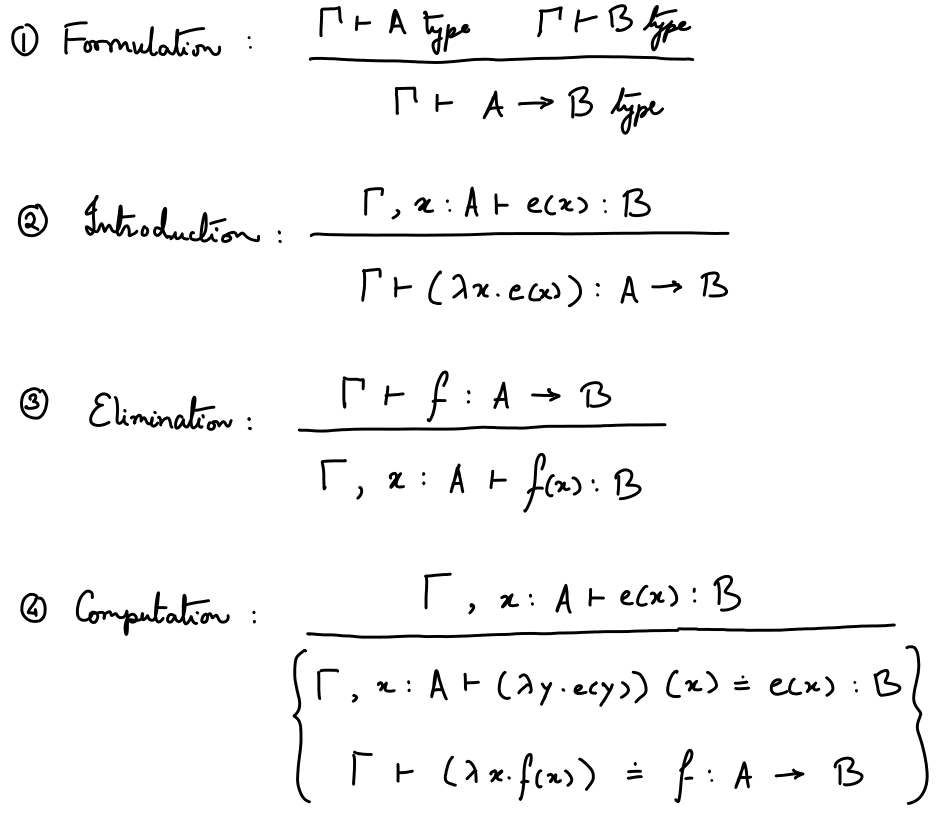 ① Formulation : Γ ⊢ A type Γ ⊢ B type
Γ ⊢ A → B type
② Introduction : Γ, x : A ⊢ e(x) : B
Γ ⊢ (λx. e(x)) : A → B
③ Elimination : Γ ⊢ f : A → B
Γ, x : A ⊢ f(x) : B
④ Computation : Γ, x : A ⊢ e(x) : B
{ Γ, x : A ⊢ (λy. e(y)) (x) ≐ e(x) : B }
Γ ⊢ (λx. f(x)) ≐ f : A → B